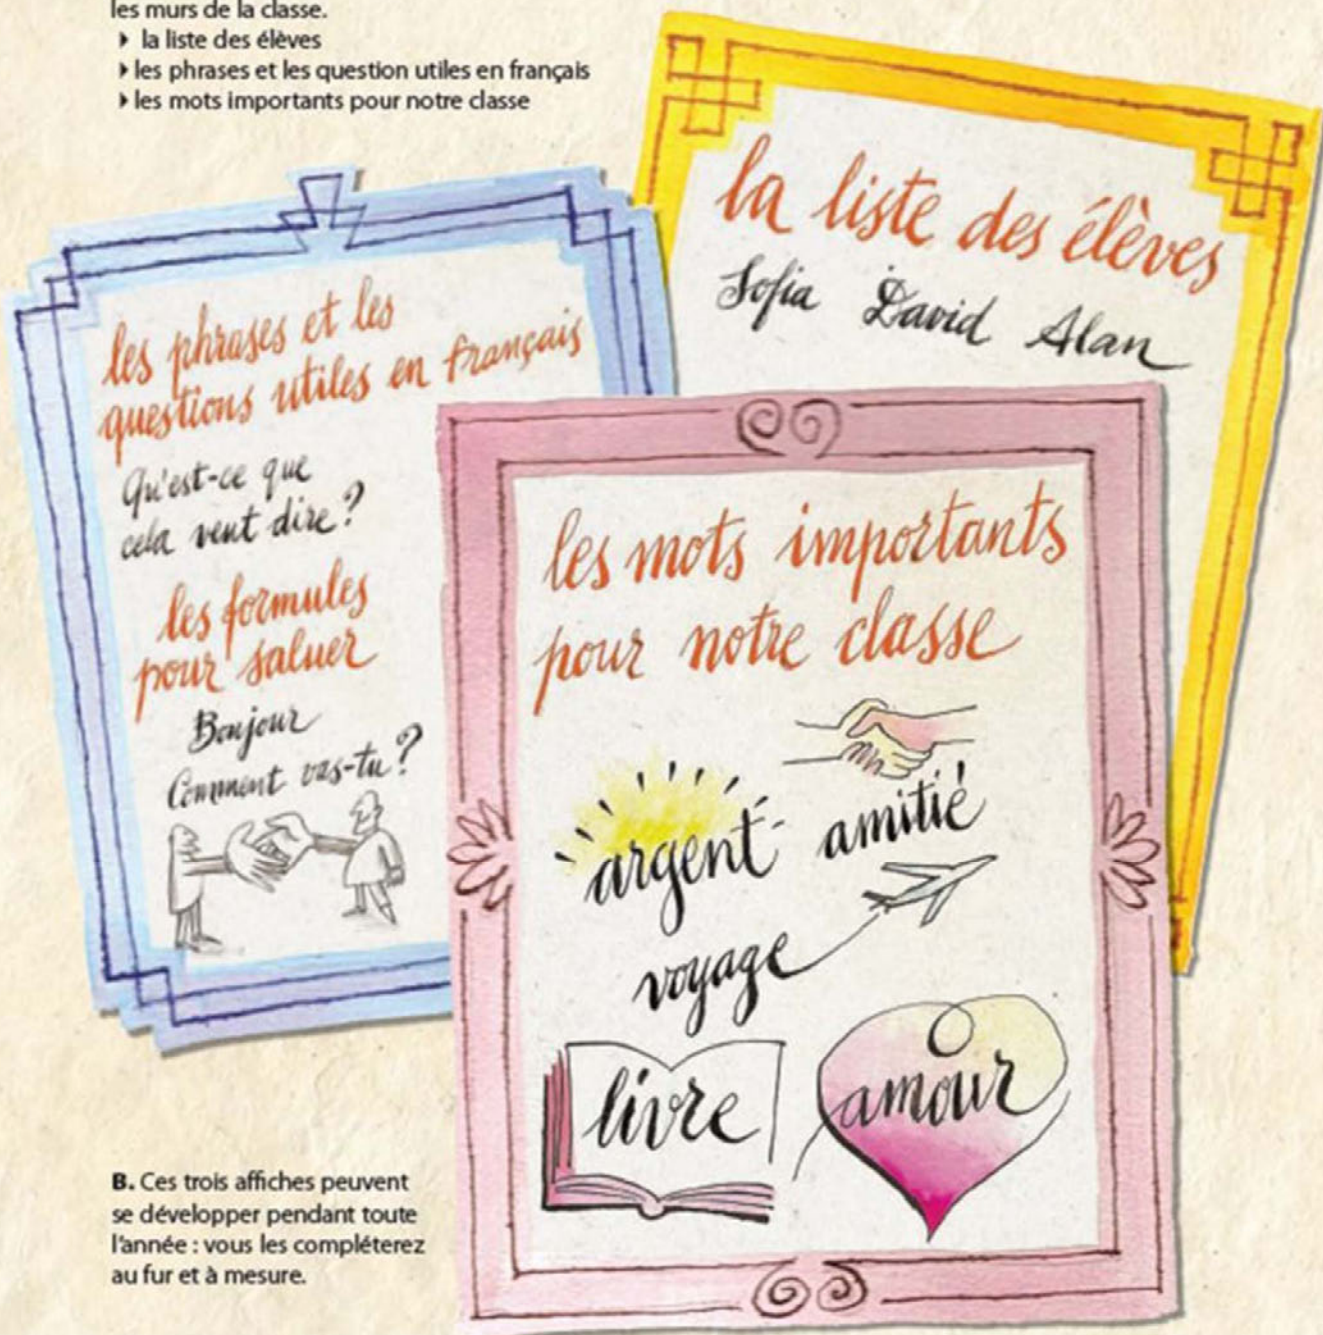 les murs de la classe.
la liste des élèves
les phrases et les question utiles en français
les mots importants pour notre classe
la liste des élèves
Sofia David Alan
les phrases et les
questions utiles en français
Qu'est-ce que
cela veut dire ?
les formules
pour saluer
Bonjour
Comment vas-tu ?
les mots importants
pour notre classe
argent amitié
voyage
livre
amour
B. Ces trois affiches peuvent
se développer pendant toute
l'année : vous les compléterez
au fur et à mesure.